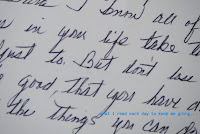 I know all of
in your life take t
just to. But don't lose
good that you have d
the things you can do
what I read each day to keep me going...